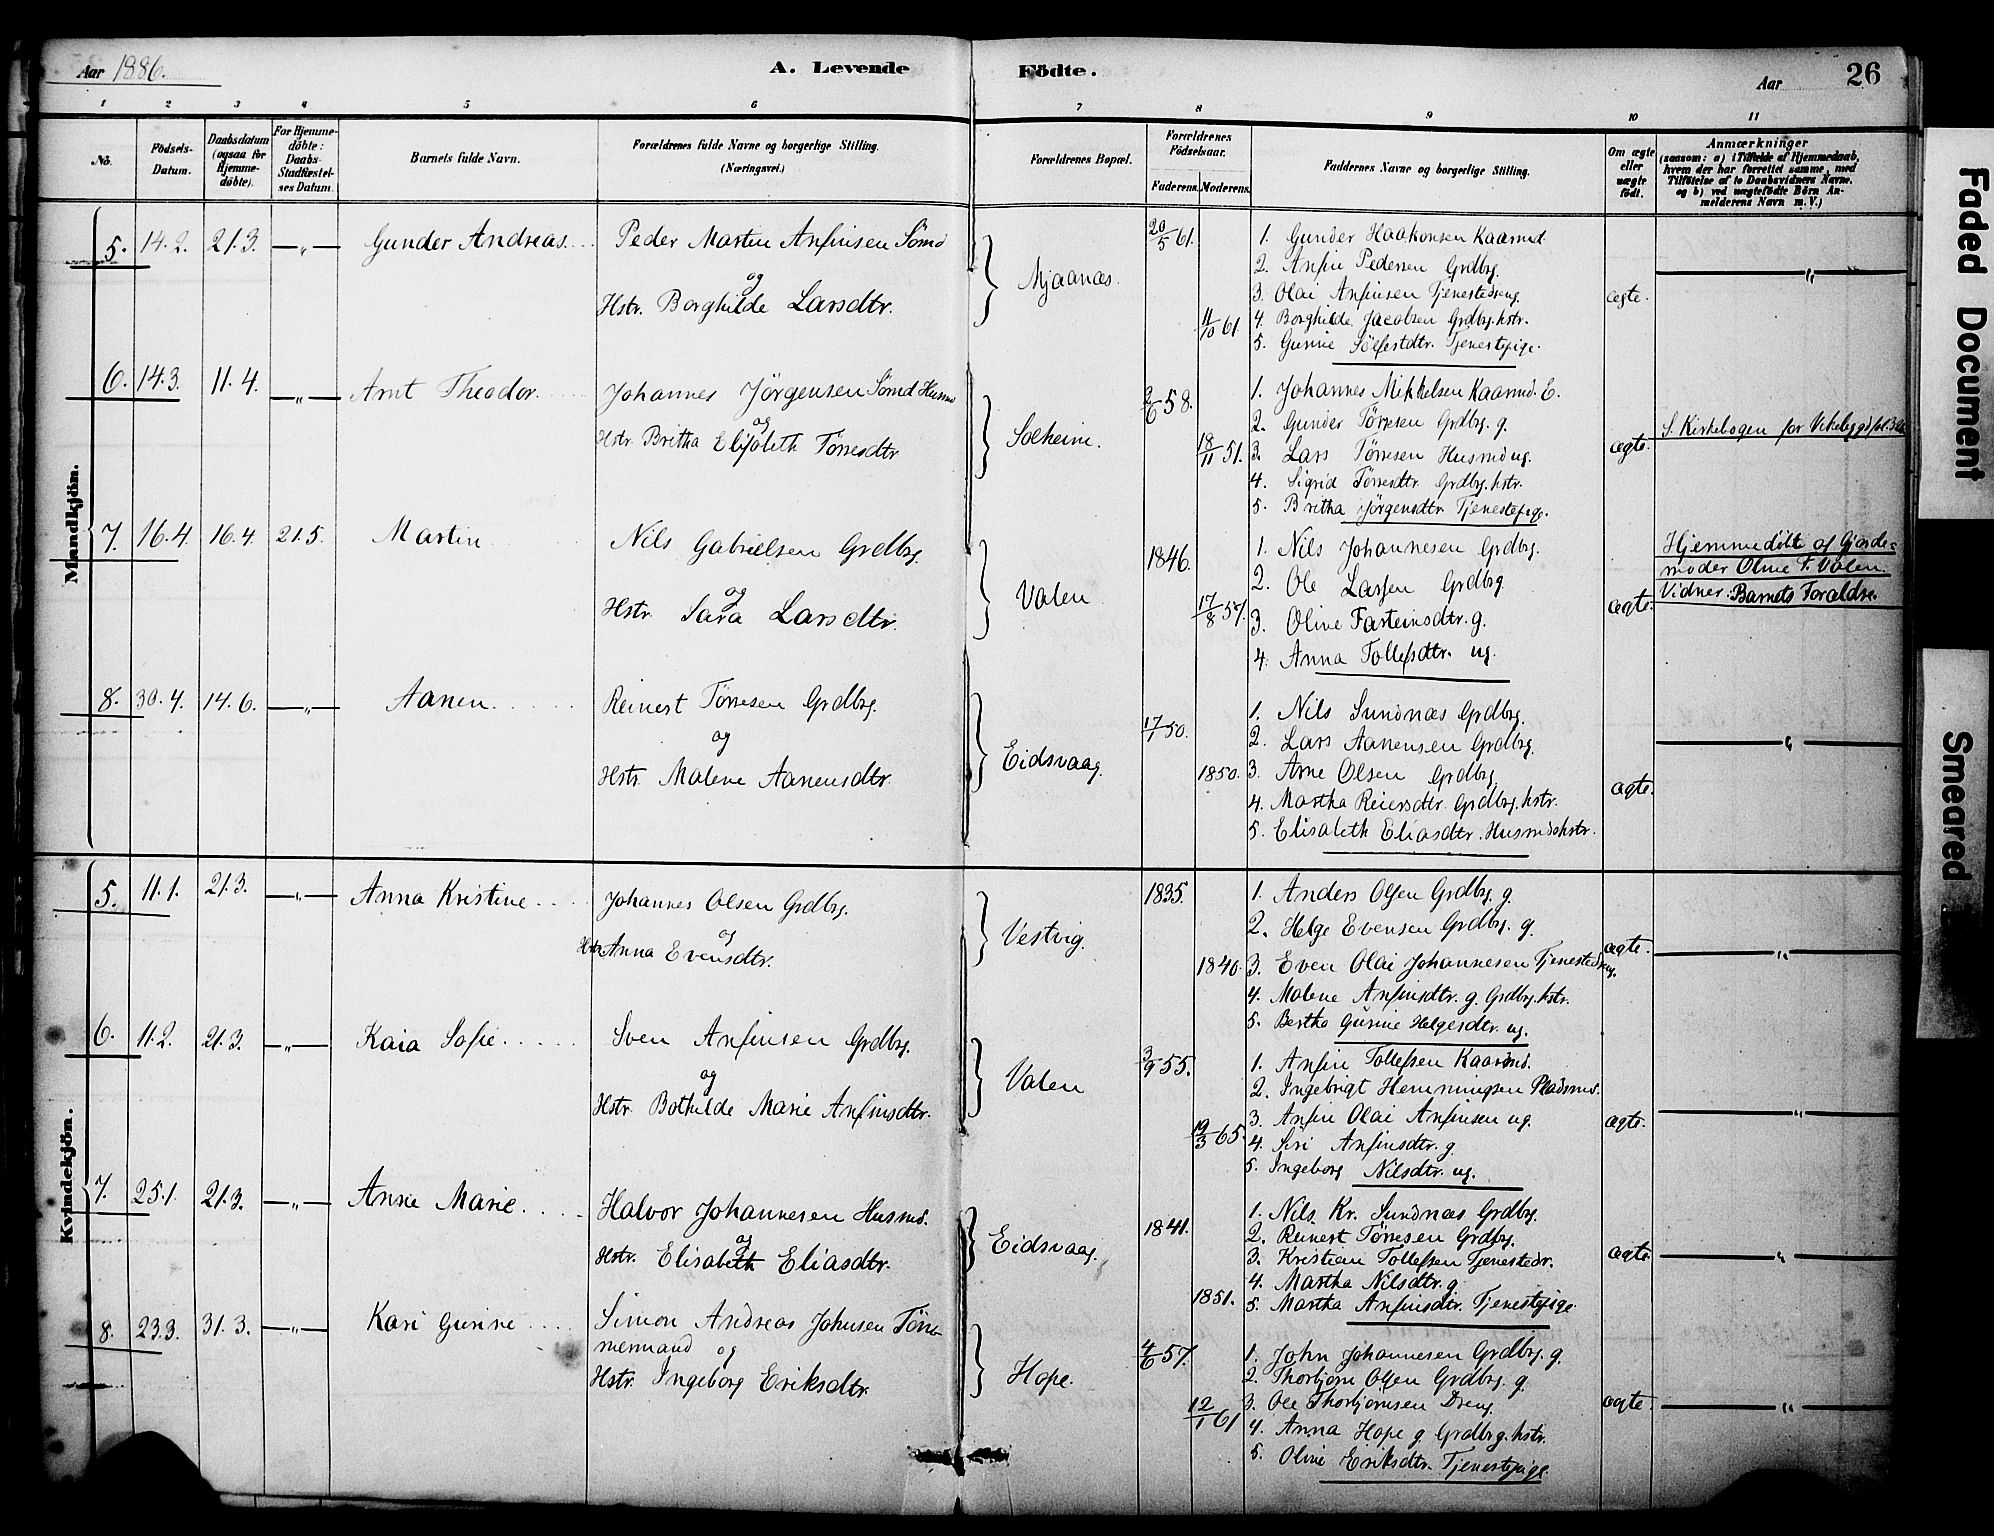 Aar 1886.
A. Levende Födte.
Aar 26
1 2 3 4 5 6 7 8 9 10 11
No.
Födsels-Datum.
Daabsdatum (ogsaa for Hjemme-döbte).
For Hjemme-döbte: Daabs-Stadfæstel-ses Datum.
Barnets fulde Navn.
Forældrenes fulde Navne og borgerlige Stilling. (Næringsvei.)
Forældrenes Bopæl.
Forældrenes Födselsaar.
Faderens. Moderens.
Faddernes Navne og borgerlige Stilling.
Om ægte eller uægte födt.
Anmærkninger
(saasom: a) i Tilfælde af Hjemmedaab, hvem der har forrettet samme, med Tilföielse af to Daabsvidners Navne, og b) ved uægtefödte Börn An-melderens Navn m. V.)
Mandkjön.
5. 14.2. 21.3. —„— Gunder Andreas. Peder Martin Anfinsen Sömd
og
Hstr. Borghilde Larsdtr.
Mjaanæs.
20/5 61. 11/10 61
1. Gunder Haakonsen Kaarmd.
2. Anfin Pedersen Grdbrg.
3. Olai Anfinsen Tjenestedreng.
4. Borghilde Jacobsen Grdbrg.hstr.
5. Gurine Sölfestdtr. Tjenestepige.
ægte. „
6. 14.3. 11.4. —„— Arnt Theodor. Johannes Jörgensen Sömd Husmd
og
Hstr. Britha Elisabeth Törresdtr
Solheim.
2/6 58. 18/11 51.
1. Johannes Mikkelsen Kaarmd. E.
2. Gunder Törresen Grdbrg. g.
3. Lars Törresen Husmd ug.
4. Sigrid Törresdtr Grdbrg.hstr.
5. Britha Jörgensdtr Tjenestepige.
ægte.
S. Kirkebogen for Vikebygd fol.
7. 16.4. 16.4. 21.5. Martin Nils Gabrielsen Grdbrg.
og
Hstr. Sara Larsdtr.
Valen
1846. 17/8 57.
1. Nils Johannesen Grdbrg.
2. Ole Larsen Grdbrg
3. Oline Farteinsdtr. g.
4. Anna Tollefsdtr. ug.
ægte.
Hjemmedöbt af Gjorde-
moder Oline F. Valen.
Vidner: Barnets Forældre.
8. 30.4. 14.6. —„— Aanen. Reinert Törresen Grdbrg.
og
Hstr. Malene Aanensdtr.
Eidsvaag.
17/1 50. 1850.
1. Nils Sundnæs Grdbrg.
2. Lars Aanensen Grdbrg.
3. Arne Olsen Grdbrg.
4. Martha Reiersdtr. Grdbrg.hstr.
5. Elisabeth Eliasdtr. Husmdshstr.
ægte. „
Kvindekjön.
5. 11.1. 21.3. —„— Anna Kristine. Johannes Olsen Grdbrg.
og
Hstr. Anna Evensdtr.
Vestvig.
1835. 1840.
1. Anders Olsen Grdbrg. g.
2. Helge Evensen Grdbrg. g.
3. Even Olai Johannesen Tjenestedreng.
4. Malene Anfinsdtr. g. Grdbrg.hstr.
5. Bertha Gurine Helgesdtr. ug.
ægte. „
6. 11.2. 21.3. —„— Kaia Sofie. Sven Anfinsen Grdbrg.
og
Hstr. Bothilde Marie Anfinsdtr.
Valen
3/9 55. 19/3 65.
1. Anfin Tollefsen Kaarmd.
2. Ingebrigt Hemmingsen Pladsmd.
3. Anfin Olai Anfinsen ug.
4. Siri Anfinsdtr. g
5. Ingeborg Nilsdtr. ug.
ægte. „
7. 25.1. 21.3. —„— Anne Marie. Halvor Johannesen Husmd.
og
Hstr. Elisabeth Eliasdtr.
Eidsvaag.
1841. 1851.
1. Nils Kr. Sundnæs Grdbrg.
2. Reinert Törresen Grdbrg.
3. Kristian Tollefsen Tjenestedr.
4. Martha Nilsdtr. g
5. Martha Anfinsdtr. Tjenestepige.
ægte. „
8. 23.3. 31.3. —„— Kari Gurine Simon Andreas Johnsen Töm-
mermand og
Hstr. Ingeborg Eriksdtr.
Hope.
4/6 57. 12/1 61
1. John Johannesen Grdbrg. g.
2. Thorbjörn Olsen Grdbrg. g.
3. Ole Thorbjörnsen Dreng.
4. Anna Hope g Grdbrg.hstr.
5. Oline Eriksdtr. Tjenestepige.
ægte. „
Faded Document
Smeared